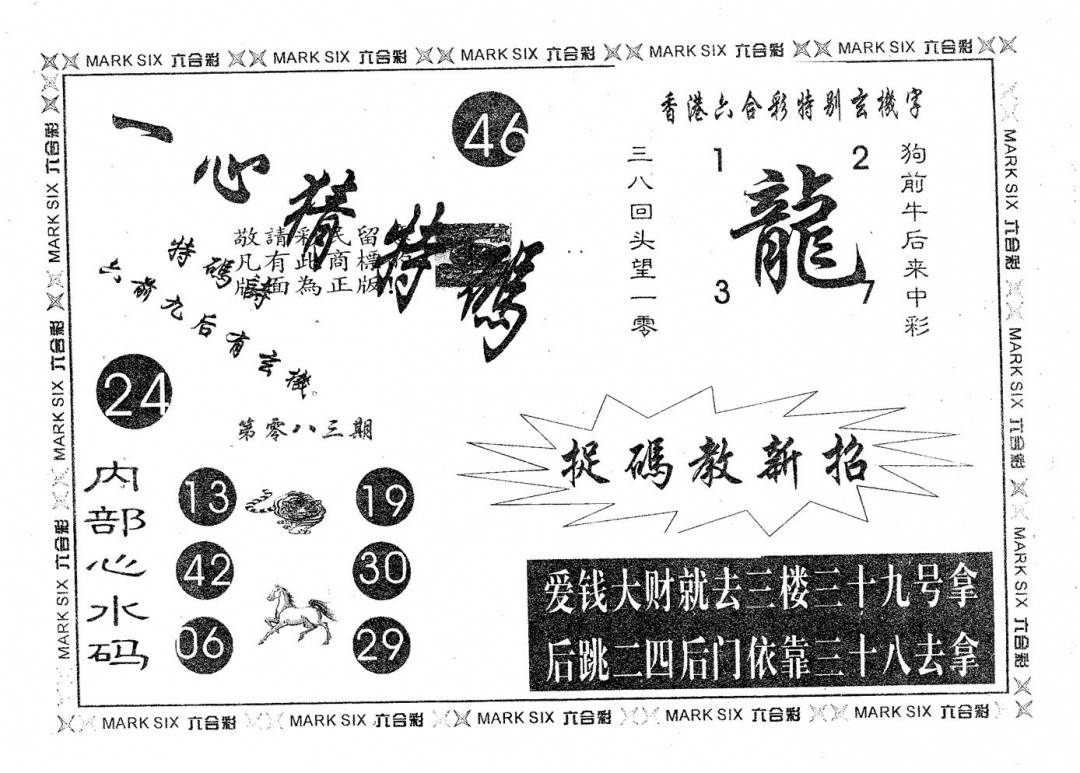 MARK SIX 六合彩 MARK SIX 六合彩 MARK SIX 六合彩 MARK SIX 六合彩 MARK SIX 六合彩
一心猜特碼
46
敬請彩民留
凡有此商標
版面為正版!
特碼詩
六前九后有玄機。
24
第零八三期
内部心水码
13 19
42 30
06 29
香港六合彩特别玄機字
三八回头望一零
1 2
龍
3 7
狗前牛后来中彩
捉碼教新招
爱钱大财就去三楼三十九号拿
后跳二四后门依靠三十八去拿
MARK SIX 六合彩 MARK SIX 六合彩 MARK SIX 六合彩
MARK SIX 六合彩 MARK SIX 六合彩 MARK SIX 六合彩
MARK SIX 六合彩 MARK SIX 六合彩 MARK SIX 六合彩 MARK SIX 六合彩 MARK SIX 六合彩